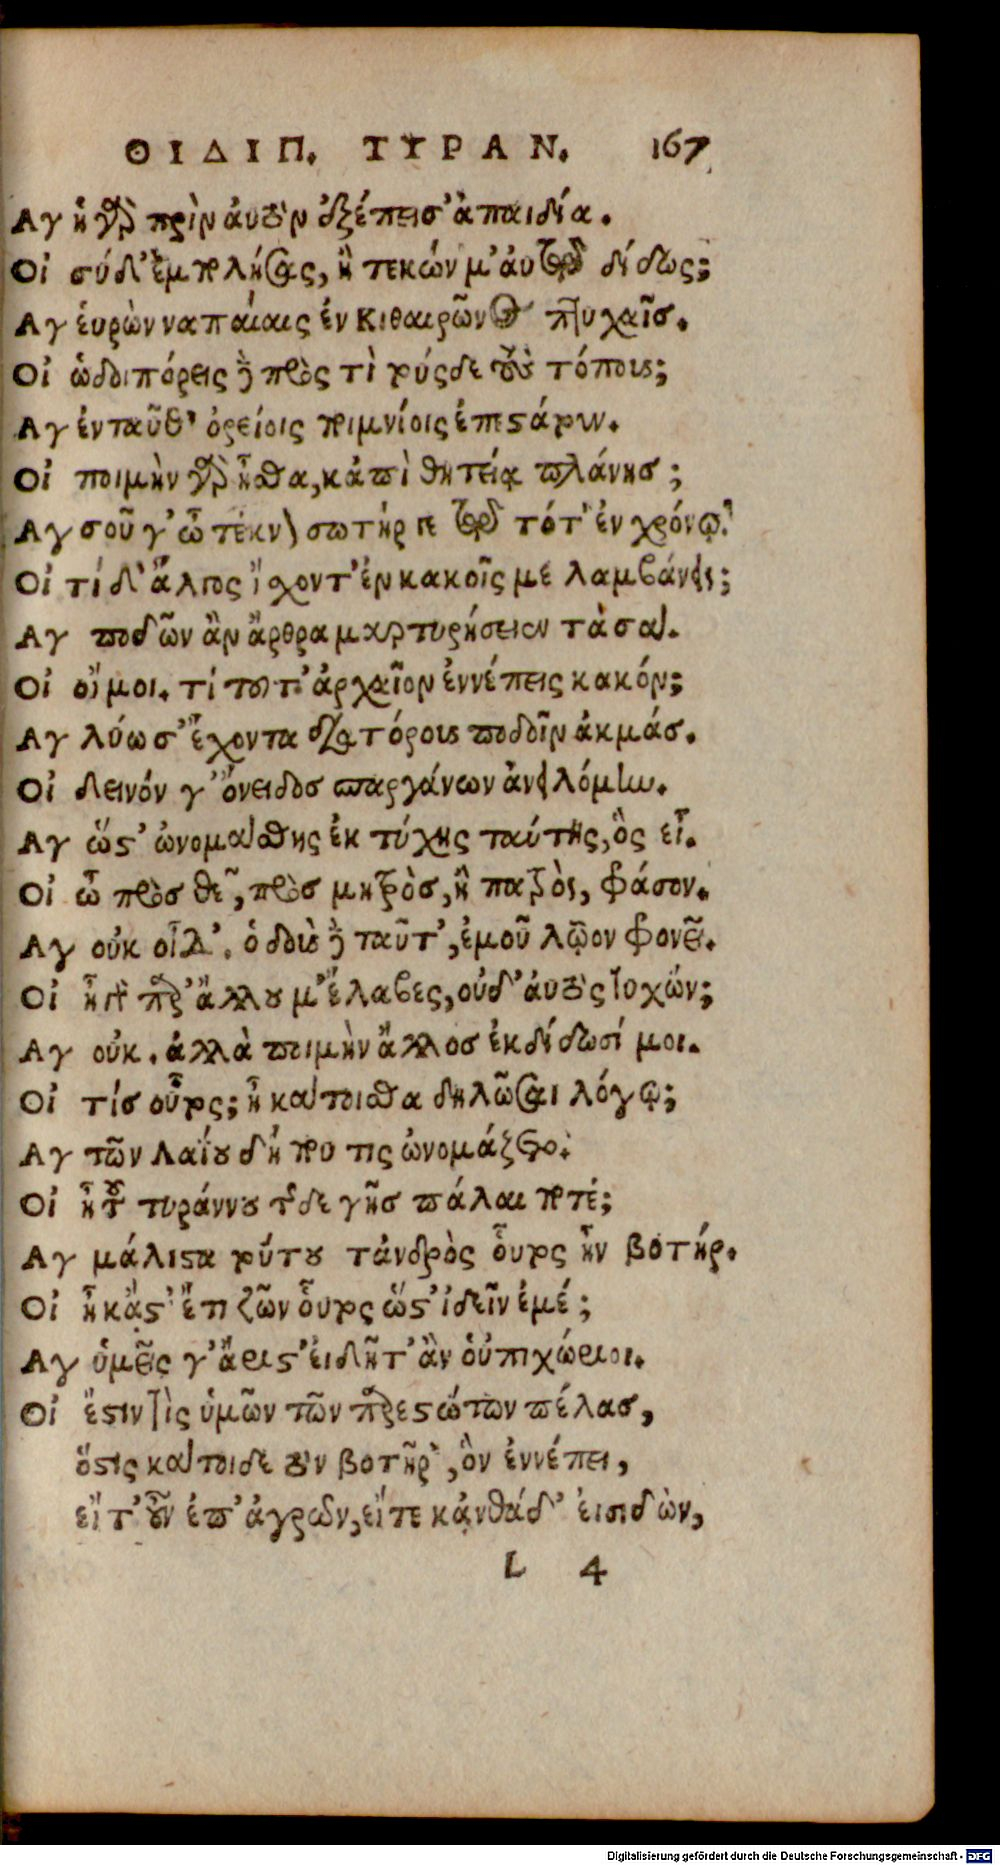 ΟΙΔΙΠ. ΤΥΡΑΝ. 167
Αγ ἡ γὰρ πρὶν αὐτὸν ἐξέπεισ' ἀπαιδία.
Οἰ σύ δ' ἐμπολήσας, ἢ τεκών μ' αὐτῷ δίδως;
Αγ εὑρὼν ναπαίαις ἐν Κιθαιρῶνος πτυχαῖς.
Οἰ ὡδοιπόρεις δὲ πρὸς τὶ τούςδε τοὺς τόπους;
Αγ ἐνταῦθ' ὀρείοις ποιμνίοις ἐπεστάτουν.
Οἰ ποιμὴν γὰρ ἦσθα, κἀπὶ θητείᾳ πλάνης;
Αγ σοῦ γ' ὦ τέκνον σωτήρ γε τῷ τότ' ἐν χρόνῳ.
Οἰ τί δ' ἄλγος ἴσχοντ' ἐν κακοῖς με λαμβάνεις;
Αγ ποδῶν ἂν ἄρθρα μαρτυρήσειεν τὰ σά.
Οἰ οἴμοι. τί τοῦτ' ἀρχαῖον ἐννέπεις κακόν;
Αγ λύω σ' ἔχοντα διατόρους ποδοῖν ἀκμάς.
Οἰ δεινόν γ' ὄνειδος σπαργάνων ἀνειλόμην.
Αγ ὥστ' ὠνομάσθης ἐκ τύχης ταύτης, ὃς εἶ.
Οἰ ὦ πρὸς θεῶν, πρὸς μητρὸς, ἢ πατρὸς, φράσον.
Αγ οὐκ οἶδ'. ὁ δοὺς δὲ ταῦτ', ἐμοῦ λῷον φρονεῖ.
Οἰ ἦ γὰρ παρ' ἄλλου μ' ἔλαβες, οὐδ' αὐτὸς τυχών;
Αγ οὐκ. ἀλλὰ ποιμὴν ἄλλος ἐκδίδωσί μοι.
Οἰ τίς οὗτος; ἦ κάτοισθα δηλῶσαι λόγῳ;
Αγ τῶν Λαΐου δή που τις ὠνομάζετο.
Οἰ ἦ τοῦ τυράννου τῆσδε γῆς πάλαι ποτέ;
Αγ μάλιστα τούτου τἀνδρὸς οὗτος ἦν βοτήρ.
Οἰ ἦ κᾄστ' ἔτι ζῶν οὗτος ὥστ' ἰδεῖν ἐμέ;
Αγ ὑμεῖς γ' ἄριστ' εἰδῆτ' ἂν οὑπιχώριοι.
Οἰ ἔστιν τὶς ὑμῶν τῶν παρεστώτων πέλας,
ὅστις κάτοιδε τὸν βοτῆρ', ὃν ἐννέπει,
εἴτ' οὖν ἐπ' ἀγρῶν, εἴτε κᾀνθάδ' εἰσιδὼν,
L 4
Digitalisierung gefördert durch die Deutsche Forschungsgemeinschaft - DFG